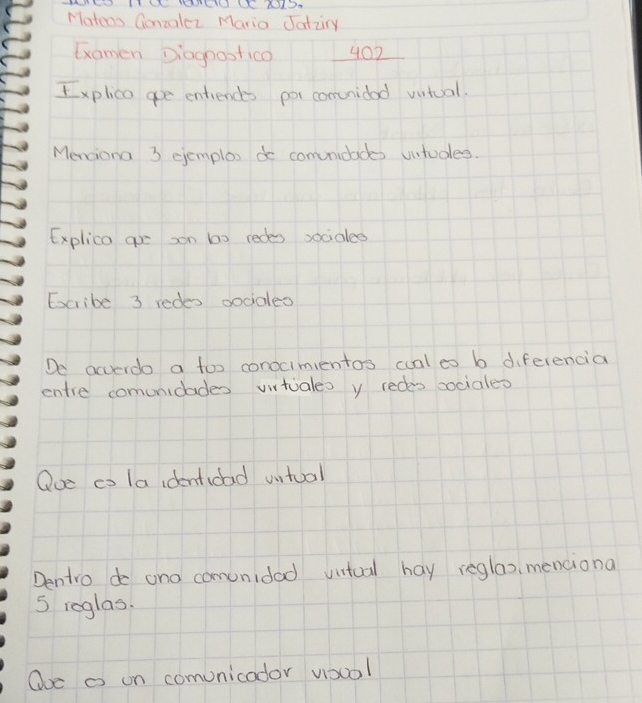 de 2025.
Mateos Gonzalez Maria Jatziry
Examen Diagnostico 402
Explica que entiendes por comunidad virtual.
Menciona 3 ejemplos de comunidades virtuales.
Explica que son las redes sociales
Escribe 3 redes sociales
De acuerdo a tus conocimientos cual es la diferencia
entre comunidades virtuales y redes sociales
Que es la identidad virtual
Dentro de una comunidad virtual hay reglas, menciona
5 reglas.
Que es un comunicador visual